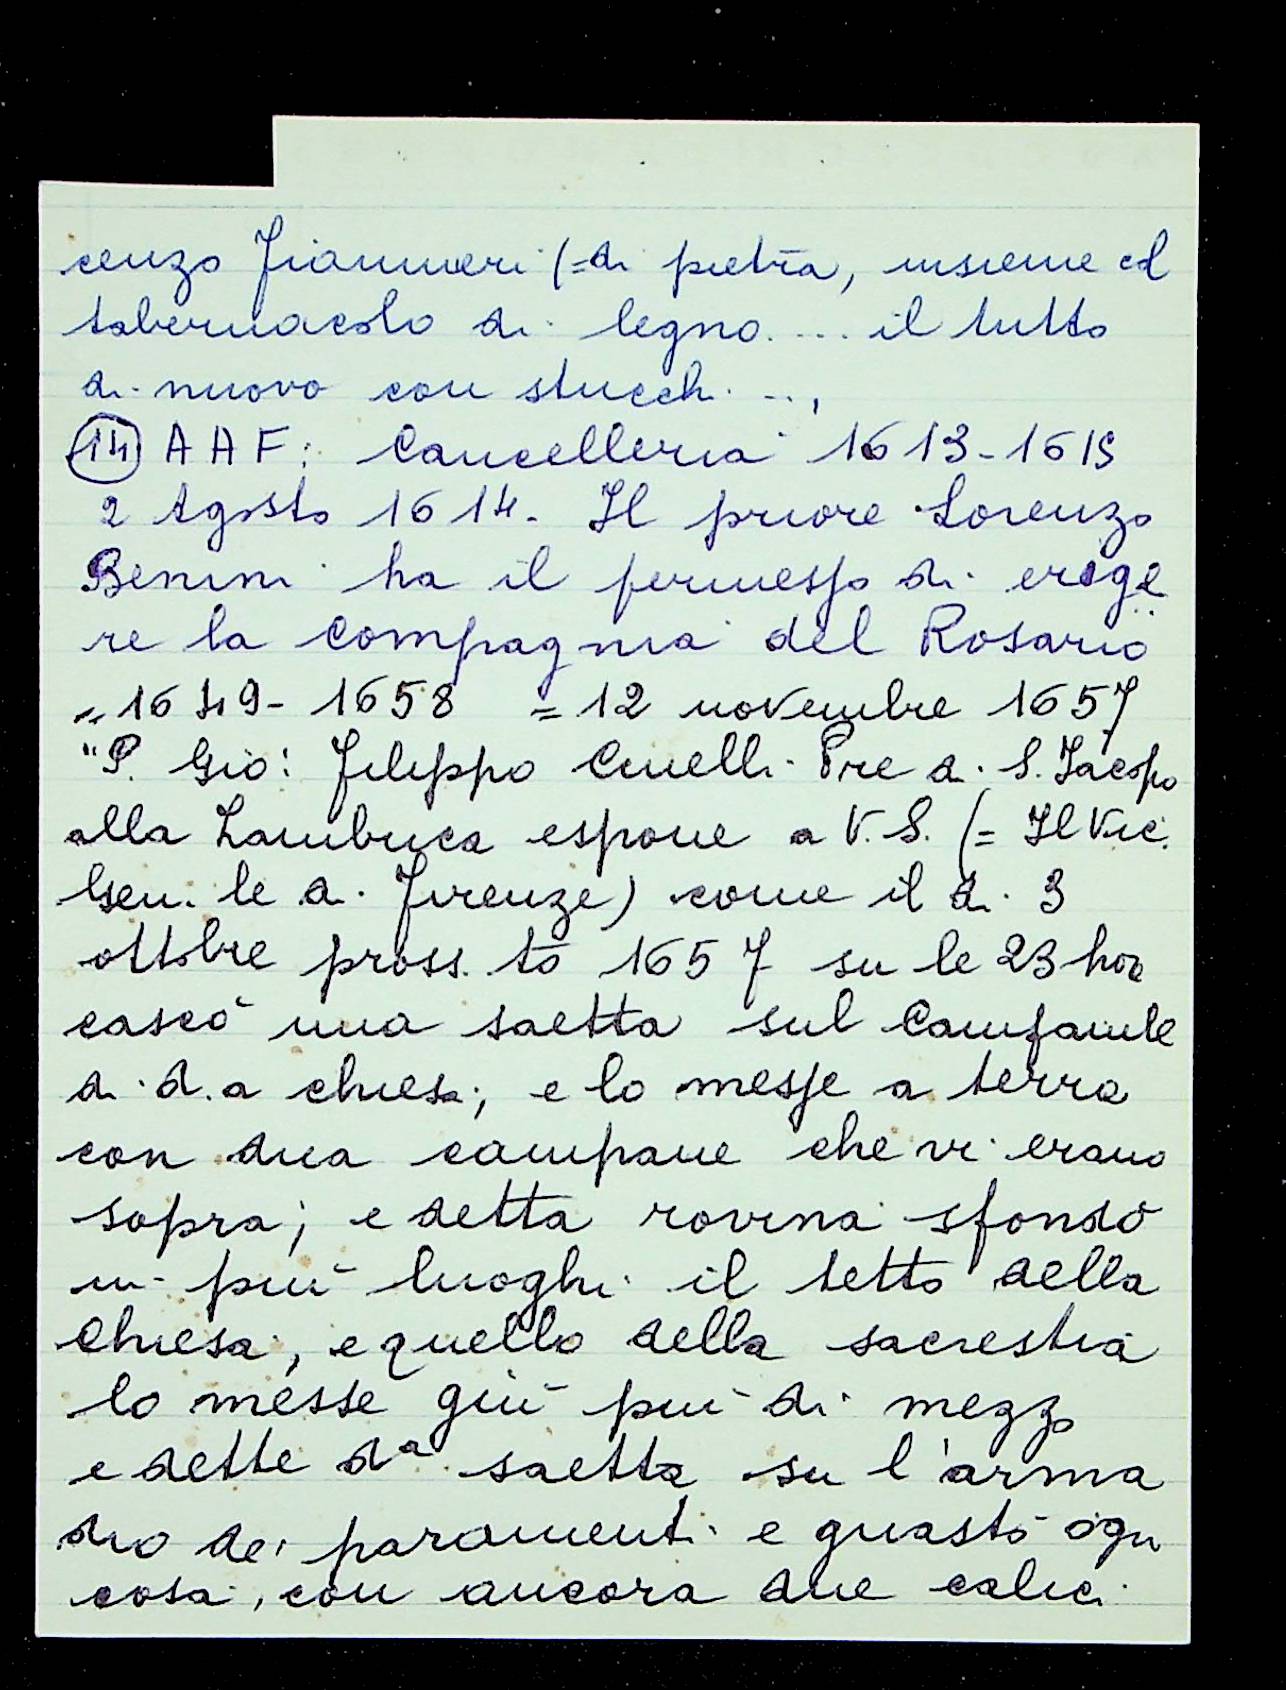 cenzo Fiammeri (= di pietra, insieme col
tabernacolo di legno .... il tutto
di nuovo con stucchi ...,
(14) AAF: Cancelleria 1613-1615
2 Agosto 1614. Il priore Lorenzo
Benini ha il permesso di erige
re la Compagnia del Rosario
" 1649-1658 = 12 novembre 1657
"P. Gio: Filippo Cinelli Pre di S. Jacopo
alla Lambruca espone a V.S. (= Il Vic.
Gen. le di Firenze) come il dì 3
ottobre pross. to 1657 su le 23 hore
cascò una saetta sul Campanile
di d.a chiesa, e lo messe a terra
con dua campane che vi erano
sopra; e detta rovina sfondò
in più luoghi il tetto della
Chiesa, e quello della sacrestia
lo messe giù più di mezzo
e dette dª saetta su l'arma
dio dei paramenti e guastò ogni
cosa, con ancora due calici